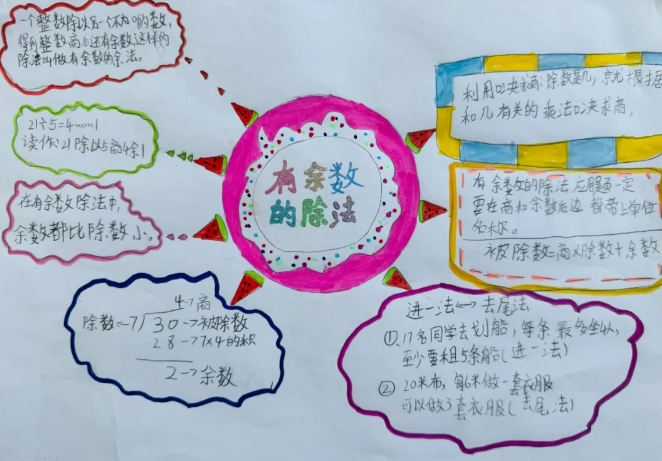 一个整数除以另一个不为0的数,
得到整数商后还有余数,这样的
除法叫做有余数的除法。
21÷5=4……1
读作:21除以5商4余1
在有余数除法中,
余数都比除数小。
有余数
的除法
利用口决求商,除数是几,就根据
和几有关的乘法口决求商。
有余数的除法应用题一定
要在商和余数后边都带上单位
名称。
被除数=商×除数+余数
4→商
除数←7 30→被除数
28→7×4的积
2→余数
进一法↔去尾法
①17名同学去划船,每条最多坐4人,
至少要租5条船(进一法)
②20米布,每6米做一套衣服
可以做3套衣服(去尾法)